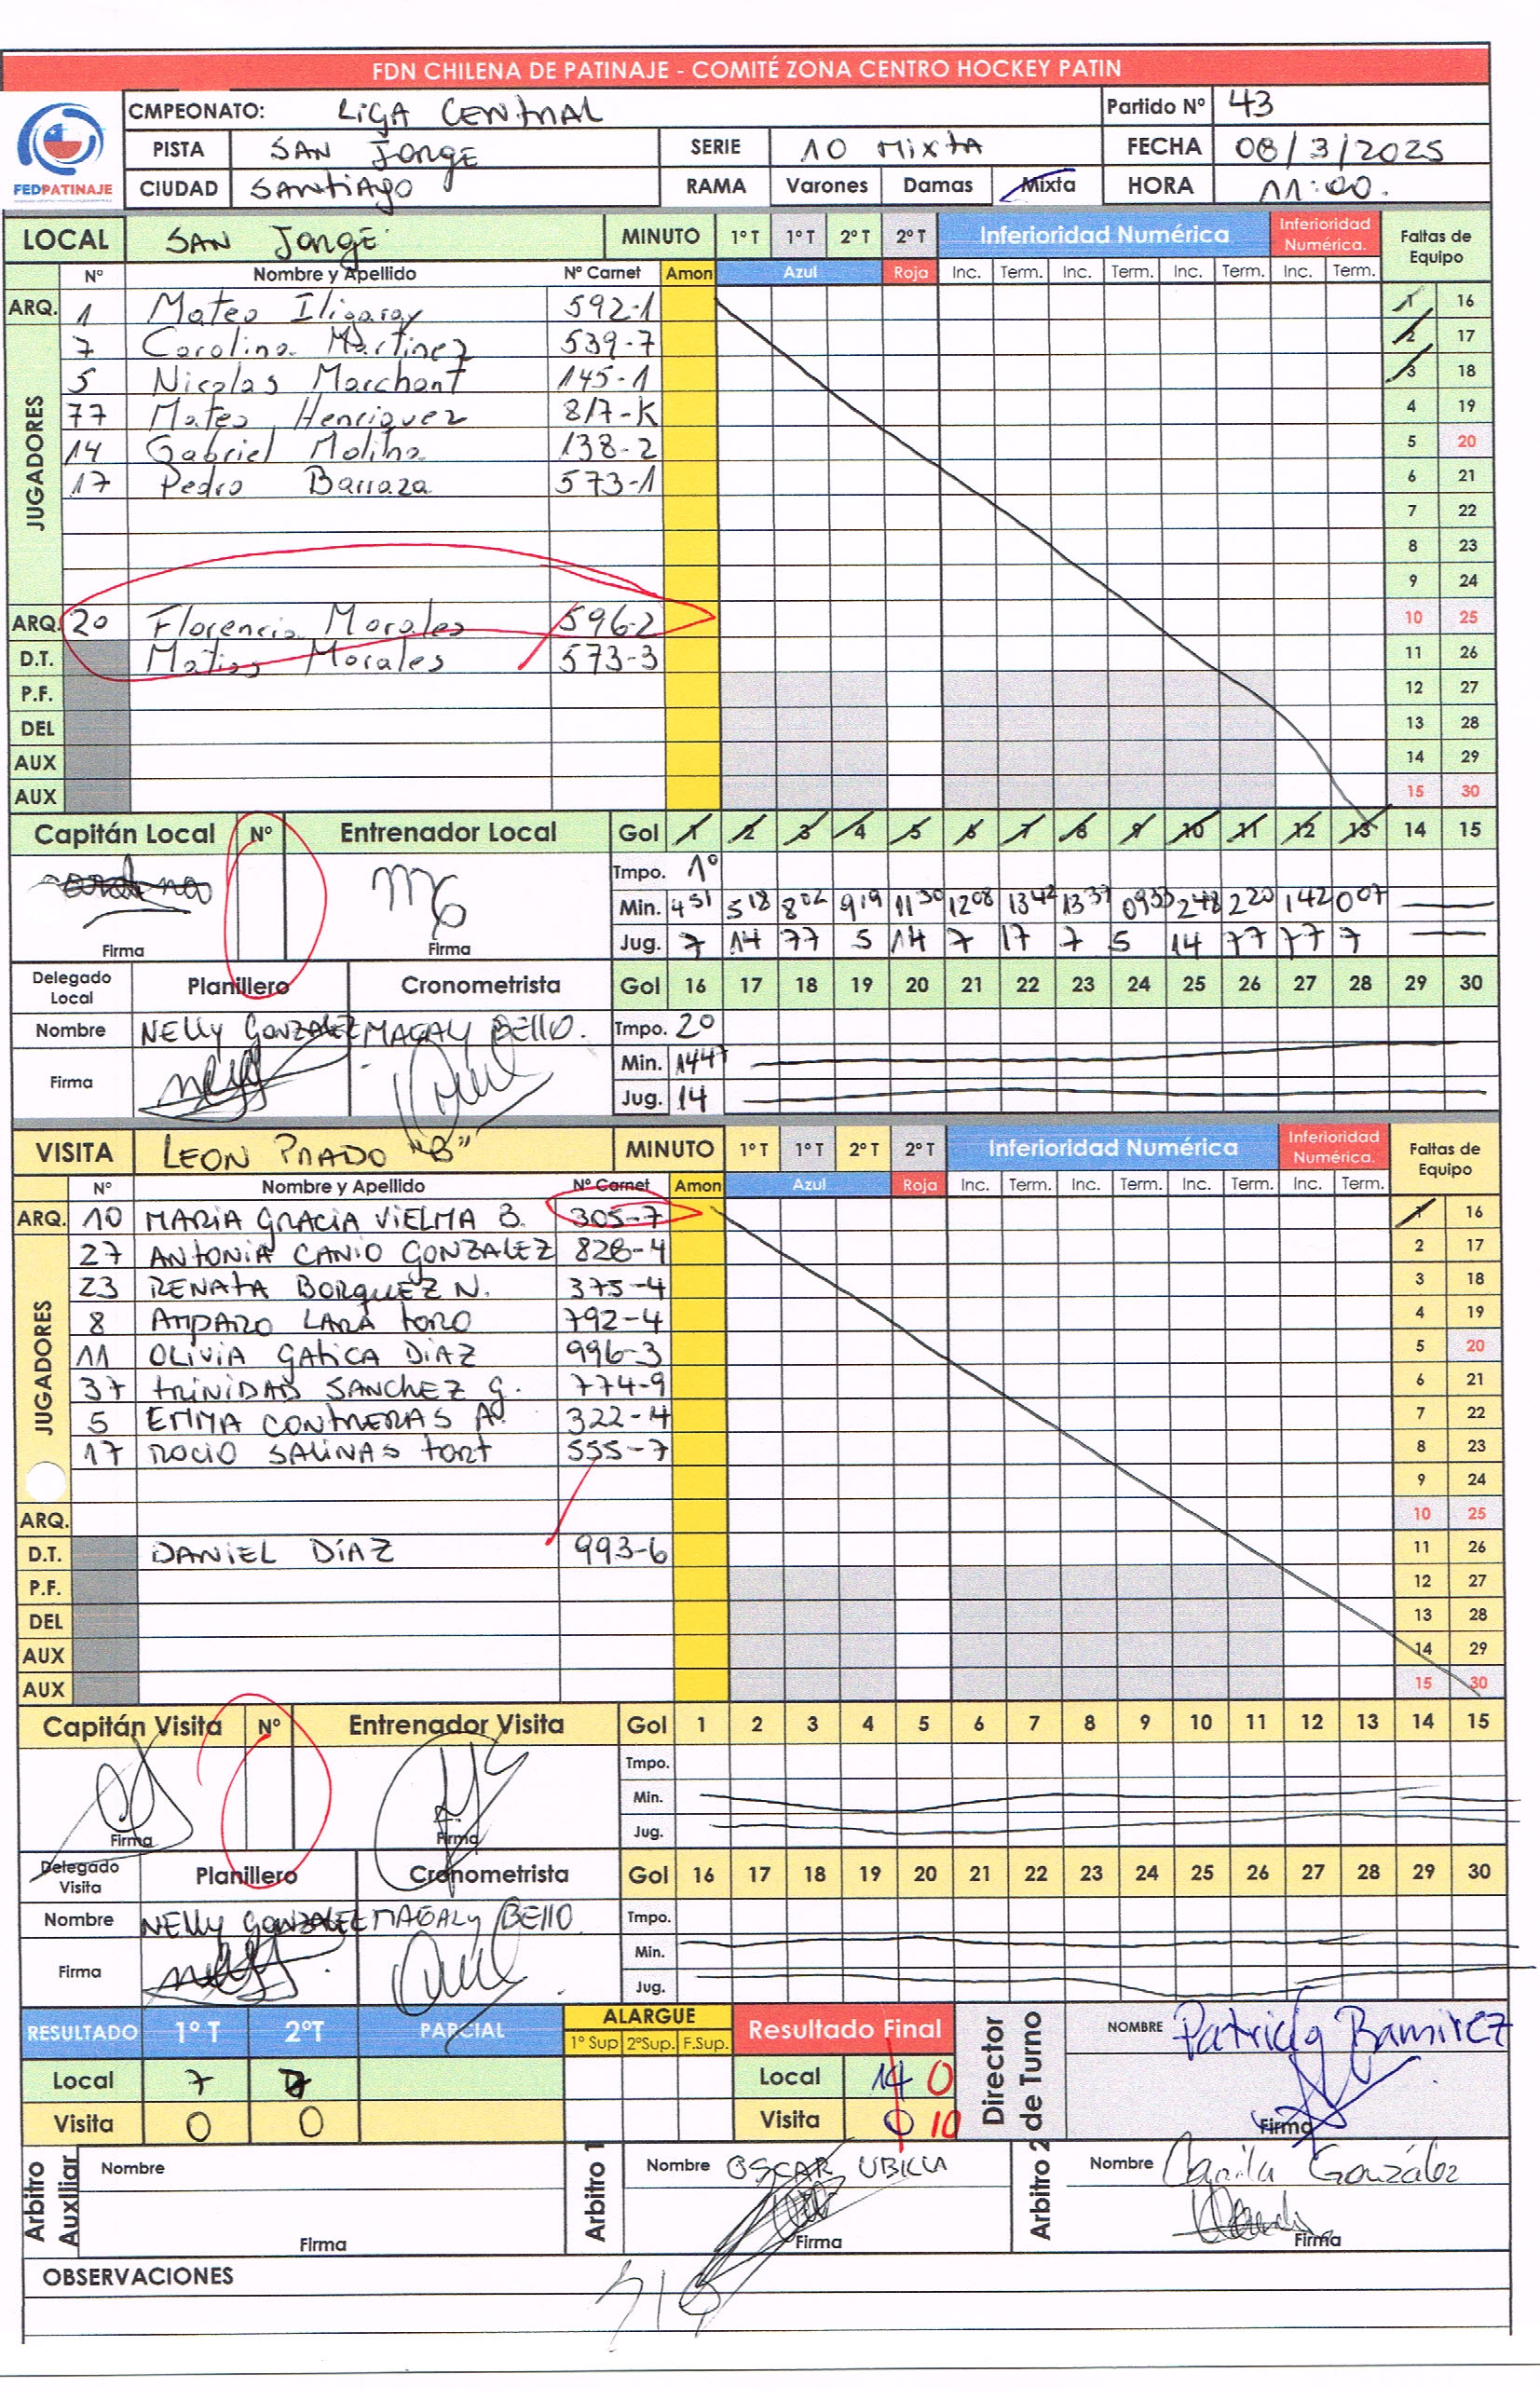 FDN CHILENA DE PATINAJE - COMITÉ ZONA CENTRO HOCKEY PATIN
FEDPATINAJE
CMPEONATO: LIGA CENTRAL Partido Nº 43
PISTA SAN JORGE SERIE 10 MIXTA FECHA 08/3/2025
CIUDAD SANTIAGO RAMA Varones Damas Mixta HORA 11:00.
LOCAL SAN JORGE MINUTO 1º T 1º T 2º T 2º T Inferioridad Numérica Inferioridad Numérica. Faltas de Equipo
Nº Nombre y Apellido Nº Carnet Amon Azul Roja Inc. Term. Inc. Term. Inc. Term. Inc. Term.
ARQ. 1 Mateo Iligaray 592-1 1 16
JUGADORES
7 Carolina Martinez 539-7 2 17
5 Nicolas Marchant 145-1 3 18
77 Mateo Henriquez 817-K 4 19
14 Gabriel Molina 138-2 5 20
17 Pedro Barraza 573-1 6 21
7 22
8 23
9 24
ARQ. 20 Florencia Morales 596-2 10 25
D.T. Matias Morales 573-3 11 26
P.F. 12 27
DEL 13 28
AUX 14 29
AUX 15 30
Capitán Local Nº Entrenador Local Gol 1 2 3 4 5 6 7 8 9 10 11 12 13 14 15
Tmpo. 1º
Min. 4 51 5 18 8 02 9 19 11 30 12 08 13 42 13 37 09 33 2 48 2 20 1 42 0 07
Firma Firma Jug. 7 14 77 5 14 7 17 7 5 14 77 77 7
Delegado Local Planillero Cronometrista Gol 16 17 18 19 20 21 22 23 24 25 26 27 28 29 30
Nombre NELLY GONZALEZ MAGALY BELLO. Tmpo. 2º
Firma Min. 14 47
Jug. 14
VISITA LEON PRADO "B" MINUTO 1º T 1º T 2º T 2º T Inferioridad Numérica Inferioridad Numérica. Faltas de Equipo
Nº Nombre y Apellido Nº Carnet Amon Azul Roja Inc. Term. Inc. Term. Inc. Term. Inc. Term.
ARQ. 10 MARIA GRACIA VIELMA B. 305-7 1 16
JUGADORES
27 ANTONIA CANIO GONZALEZ 828-4 2 17
23 RENATA BORQUEZ N. 375-4 3 18
8 AMPARO LARA TORO 792-4 4 19
11 OLIVIA GATICA DIAZ 996-3 5 20
37 TRINIDAD SANCHEZ G. 774-9 6 21
5 EMMA CONTRERAS A. 322-4 7 22
17 ROCIO SALINAS TORT 555-7 8 23
9 24
ARQ. 10 25
D.T. DANIEL DÍAZ 993-6 11 26
P.F. 12 27
DEL 13 28
AUX 14 29
AUX 15 30
Capitán Visita Nº Entrenador Visita Gol 1 2 3 4 5 6 7 8 9 10 11 12 13 14 15
Tmpo.
Min.
Firma Firma Jug.
Delegado Visita Planillero Cronometrista Gol 16 17 18 19 20 21 22 23 24 25 26 27 28 29 30
Nombre NELLY GONZALEZ MAGALY BELLO Tmpo.
Firma Min.
Jug.
RESULTADO 1º T 2ºT PARCIAL ALARGUE Resultado Final Director de Turno NOMBRE Patricia Ramirez
1º Sup 2ºSup. F.Sup.
Local 7 7 Local 14 0
Visita 0 0 Visita 0 10 Firma
Arbitro Auxiliar Nombre Arbitro 1 Nombre OSCAR UBILLA Arbitro 2 Nombre Camila González
Firma Firma Firma
OBSERVACIONES
S/O